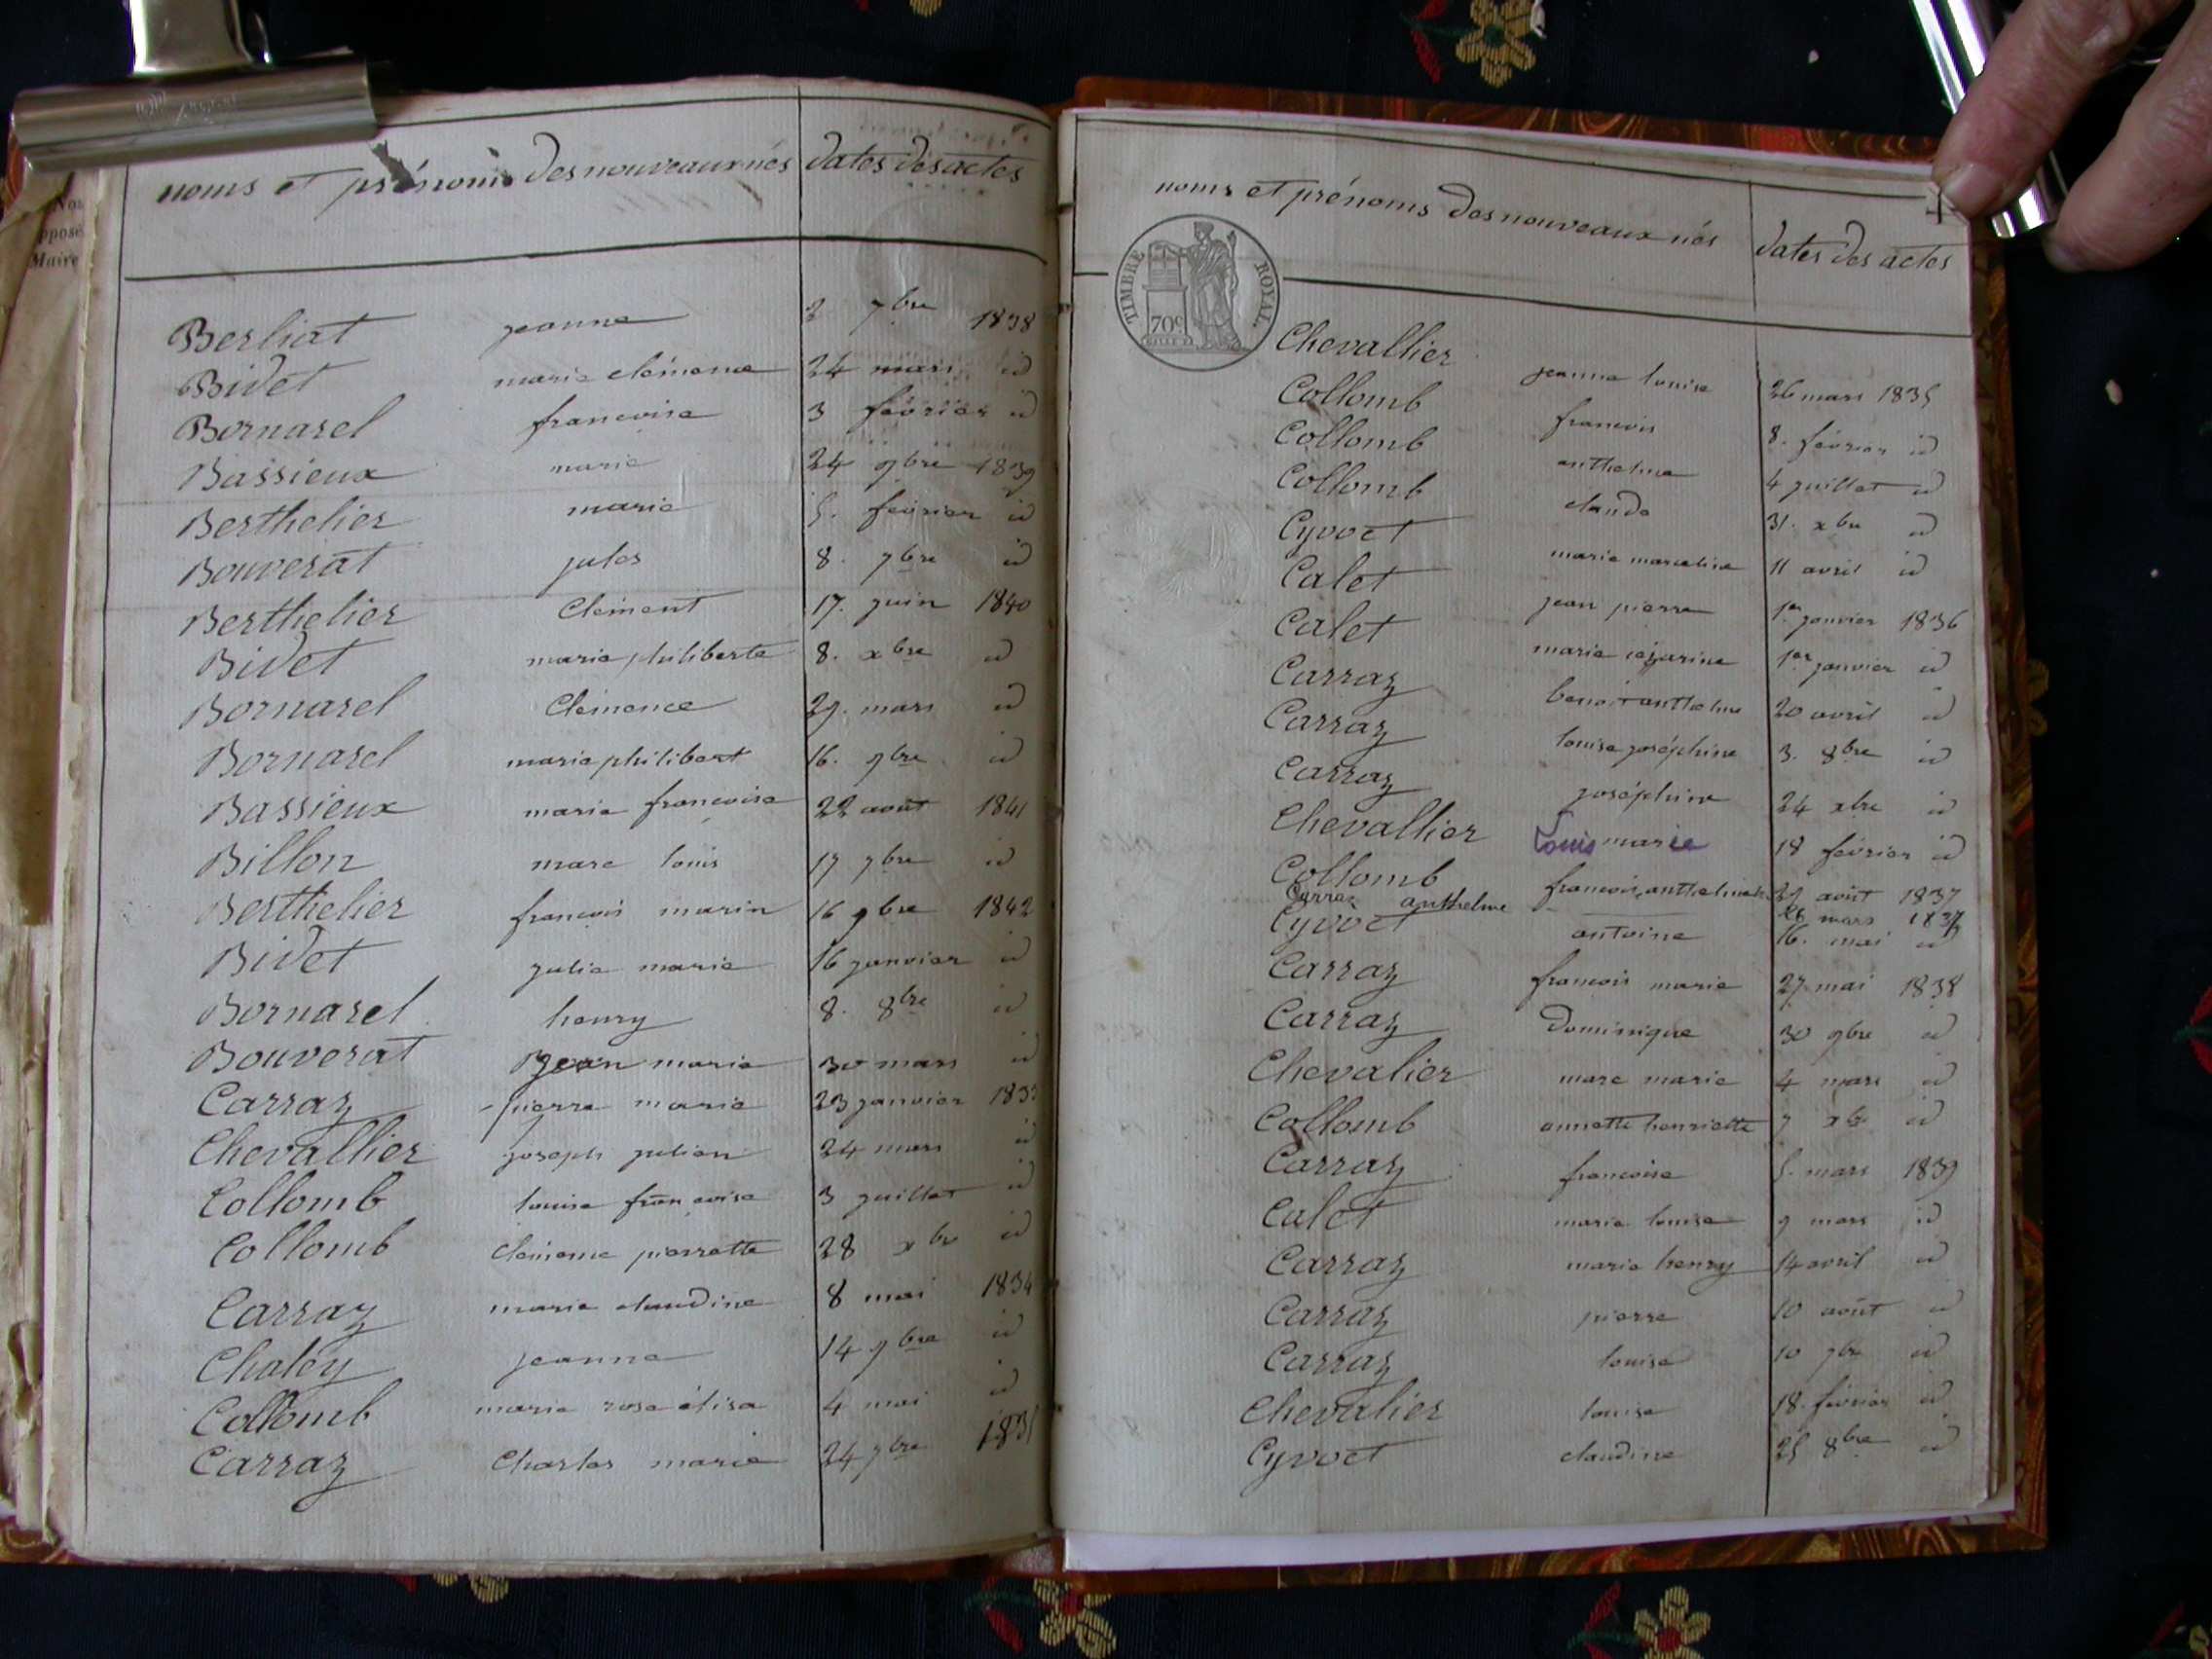 noms et prénoms des nouveaux nés dates des actes
Berliat jeanne 2 7bre 1838
Bidet marie clémence 24 mars id
Bornarel francoise 3 février id
Bassieux marie 24 9bre 1839
Berthelier marie 5. février id
Bouverat jules 8. 7bre id
Berthelier Clément 17. juin 1840
Bidet marie philiberte 8. xbre id
Bornarel Clémence 29. mars id
Bornarel marie philibert 16. 9bre id
Bassieux marie francoise 22 août 1841
Billon marc louis 17 7bre id
Berthelier francois marin 16 9bre 1842
Bidet julie marie 16 janvier id
Bornarel henry 8. 8bre id
Bouverat jean marie 30 mars id
Carraz pierre marie 23 janvier 1833
Chevallier joseph julien 24 mars id
Collomb louise francoise 3 juillet id
Collomb clémence pierrette 28 xbre id
Carraz marie claudine 8 mai 1834
Chaley jeanne 14 9bre id
Collomb marie rose élisa 4 mai id
Carraz Charles marie 24 7bre 1835
4
noms et prénoms des nouveaux nés dates des actes
TIMBRE ROYAL.
70c
Chevallier jeanne louise 26 mars 1835
Collomb francois 8. février id
Collomb anthelme 4 juillet id
Collomb claude 31. xbre id
Cyvoct marie marceline 11 avril id
Calet jean pierre 1er janvier 1836
Calet marie cézarine 1er janvier id
Carraz benoit anthelme 20 avril id
Carraz louise joséphine 3. 8bre id
Carraz joséphine 24 xbre id
Chevallier Louis marie 18 février id
Collomb francois anthelme 27 août 1837
Carraz anthelme 26 mars 1837
Cyvoct antoine 16. mai id
Carraz francois marie 27 mai 1838
Carraz Dominique 30 9bre id
Chevalier marc marie 4 mars id
Collomb annette henriette 7 xbre id
Carraz francoise 5. mars 1839
Calet marie louise 9 mars id
Carraz marie henry 14 avril id
Carraz pierre 10 août id
Carraz louise 10 7bre id
Chevalier louise 18. février id
Cyvoct claudine 25 8bre id